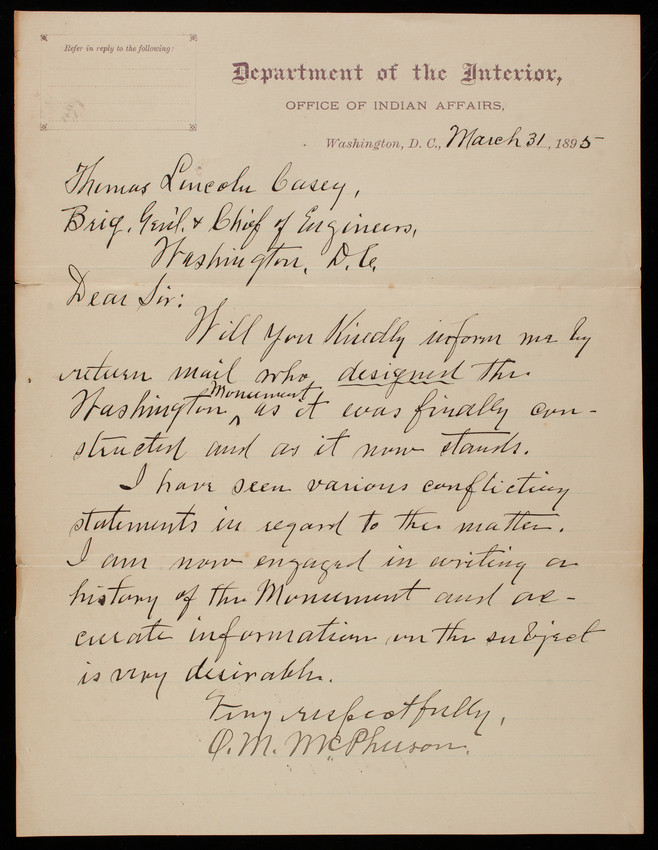 Refer in reply to the following:
Department of the Interior,
OFFICE OF INDIAN AFFAIRS,
Washington, D. C., March 31, 1895
Thomas Lincoln Casey,
Brig. Gen'l. & Chief of Engineers,
Washington, D.C.
Dear Sir:
Will you kindly inform me by
return mail who designed the
Washington Monument as it was finally con-
structed and as it now stands.
I have seen various conflicting
statements in regard to the matter.
I am now engaged in writing a
history of the Monument and ac-
curate information on the subject
is very desirable.
Very respectfully,
O. M. McPherson.